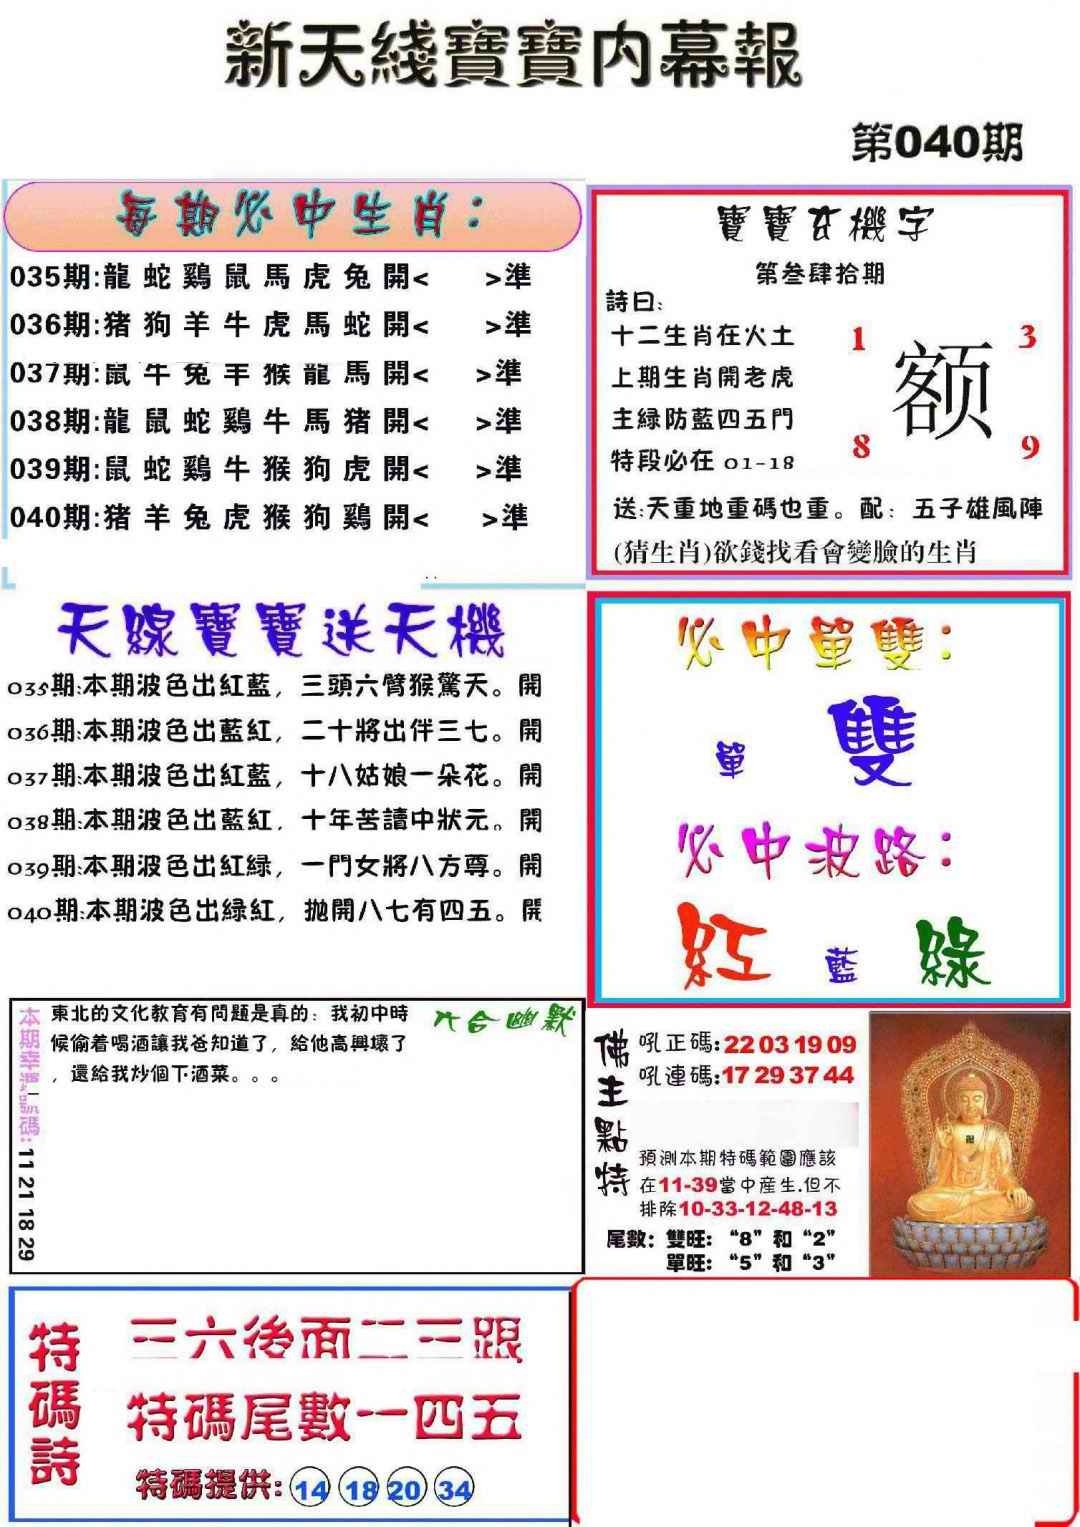 新天綫寶寶内幕報
第040期
每期必中生肖:
035期:龍 蛇 鷄 鼠 馬 虎 兔 開< >準
036期:猪 狗 羊 牛 虎 馬 蛇 開< >準
037期:鼠 牛 兔 羊 猴 龍 馬 開< >準
038期:龍 鼠 蛇 鷄 牛 馬 猪 開< >準
039期:鼠 蛇 鷄 牛 猴 狗 虎 開< >準
040期:猪 羊 兔 虎 猴 狗 鷄 開< >準
寶寶玄機字
第叁肆拾期
詩曰:
十二生肖在火土
上期生肖開老虎
主緑防藍四五門
特段必在 01-18
1 3
额
8 9
送:天重地重碼也重。配：五子雄風陣
(猜生肖)欲錢找看會變臉的生肖
天線寶寶送天機
035期:本期波色出紅藍，三頭六臂猴驚天。開
036期:本期波色出藍紅，二十將出伴三七。開
037期:本期波色出紅藍，十八姑娘一朵花。開
038期:本期波色出藍紅，十年苦讀中狀元。開
039期:本期波色出紅緑，一門女將八方尊。開
040期:本期波色出緑紅，拋開八七有四五。開
必中單雙:
單 雙
必中波路:
紅 藍 綠
本期幸運號碼:11 21 18 29
六合幽默
東北的文化教育有問題是真的：我初中時
候偷着喝酒讓我爸知道了，給他高興壞了
，還給我炒個下酒菜。。。
佛主點特
吼正碼:22 03 19 09
吼連碼:17 29 37 44
預測本期特碼範圍應該
在11-39當中産生.但不
排除10-33-12-48-13
尾數：雙旺：“8”和“2”
單旺：“5”和“3”
特碼詩
三六後面二三跟
特碼尾數一四五
特碼提供: 14 18 20 34